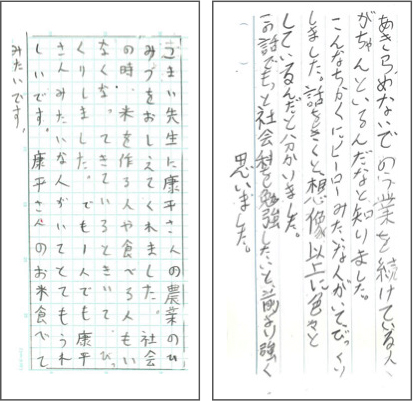 あきらめないでのう業を続けている人
がちゃんといるんだなと知りました。
こんなちかくにヒーローみたいな人がいてびっくり
しました。話をきくと想像以上に色々と
しているんだと分かりました。
この話でもっと社会科を勉強したいと前より強く
思いました。
こまい先生に康平さんの農業のひ
みつをおしえてくれました。社会
の時、米を作る人や食べる人もい
なくなってきているときいて、びっ
くりしました。でも1人でも康平
さんみたいな人がいてとてもうれ
しいです。康平さんのお米食べて
みたいです。